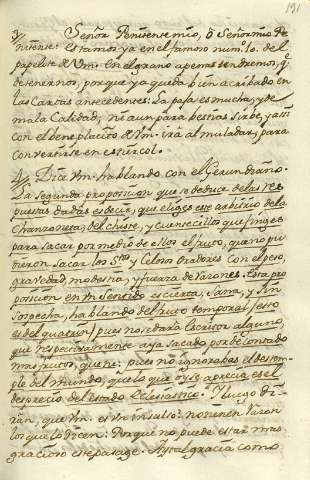 191
y Señor Penitente mio, ò Señor mio Pe
nitente: estamos ya en el famoso num.º 10. del
papelete de Vm. En el grano apenas tendremos, q̃
detenernos, porque ya queda bien acribado en
las Cartas antecedentes: La paja es mucha, y de
mala Calidad, ni aun para bestias sirbe, y assi
con el beneplacito de Vm. irá al muladar, para
convertirse en estiercol.
Dice Vm. hablando con el Gerundiano.
La segunda proposicion que se deduce de las res
puestas dadas es decir, que elige este arbitrio de la
Chanzoneta, del chiste, y cuentecillos que finges
para sacar por medio de ellos el fruto, que no pu
dieron sacar los S.tos y Celosos Oradores con el peso,
gravedad, modestia, y fuerza de Varones. Esta pro
posicion en un sentido es cierta, sana, y sin
sospecha, hablando del fruto temporal (esso
es del quatrin) pues no se dará Escritor alguno,
que respectivamente aya sacado por de contado
mas frutos, que tu: pues no ignorabas el destem
ple del mundo, que lo que oy se aprecia es el
desprecio del Estado Eclesiastico. Y luego di
rán, que Vm. es Un insulso: no tienen razon
los que lo dicen: Porque no puede estar mas
gracioso este pasage. Ay tal gracia como